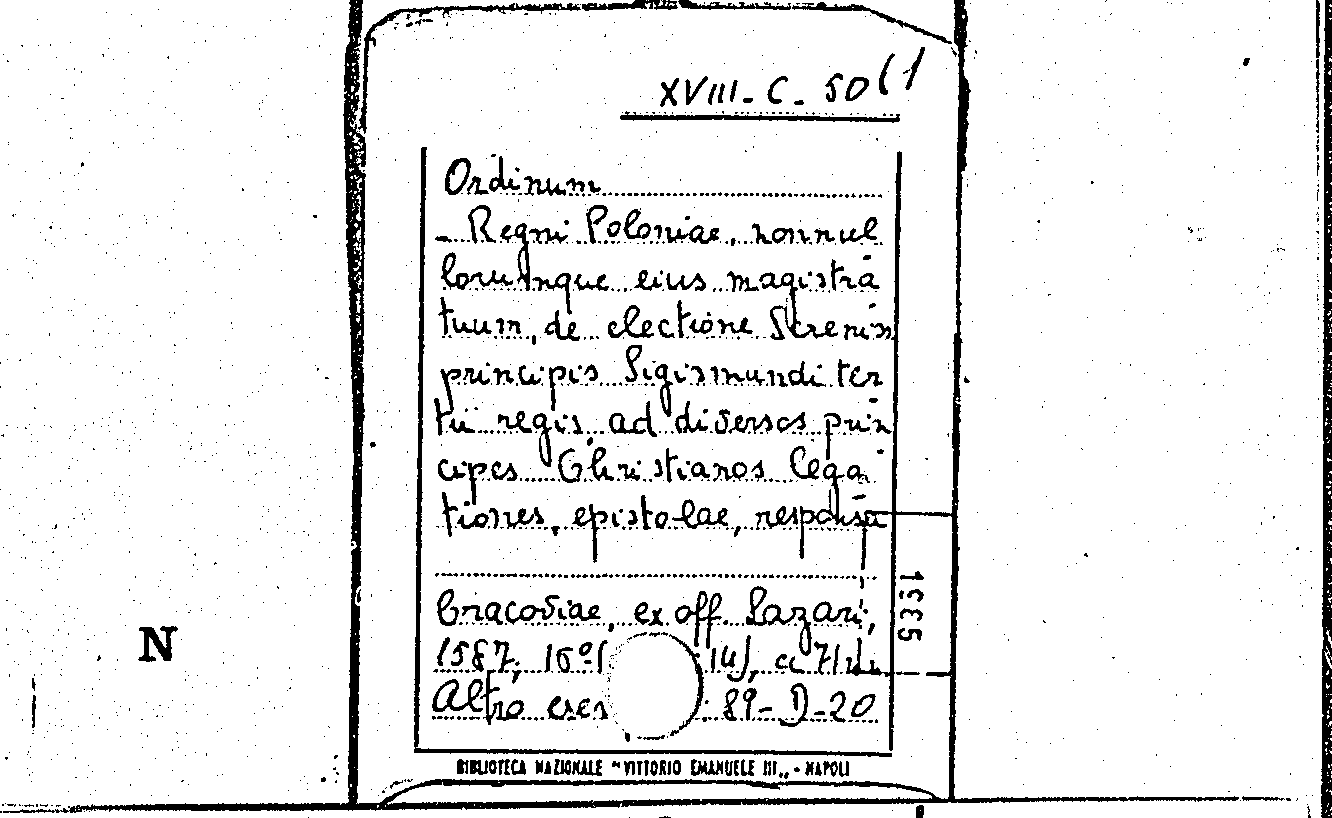 XVIII-C-50(1
Ordinum
- Regni Poloniae, nonnul
lorumque eius magistra
tuum, de electione Serenis
principis Sigismundi ter
tii regis, ad diversos prin
cipes Christianos lega
tiones, epistolae, responsa
Cracoviae, ex off. Lazari,
1587, 16º( 14),
Altro : 89-D-20
1335
N
BIBLIOTECA NAZIONALE "VITTORIO EMANUELE III„ - NAPOLI